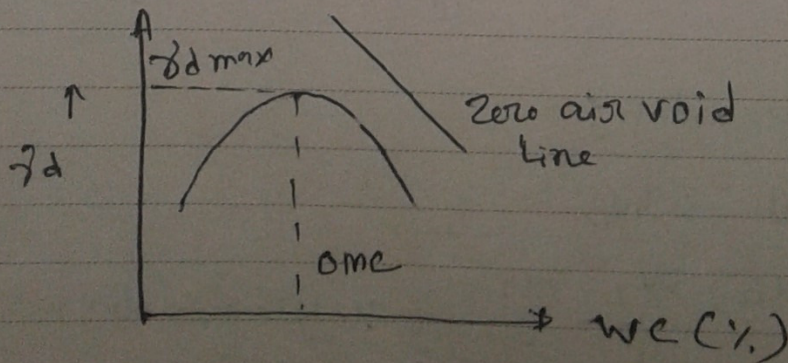 γd max
↑
γd
Zero air void
Line
OMC
WC (%)